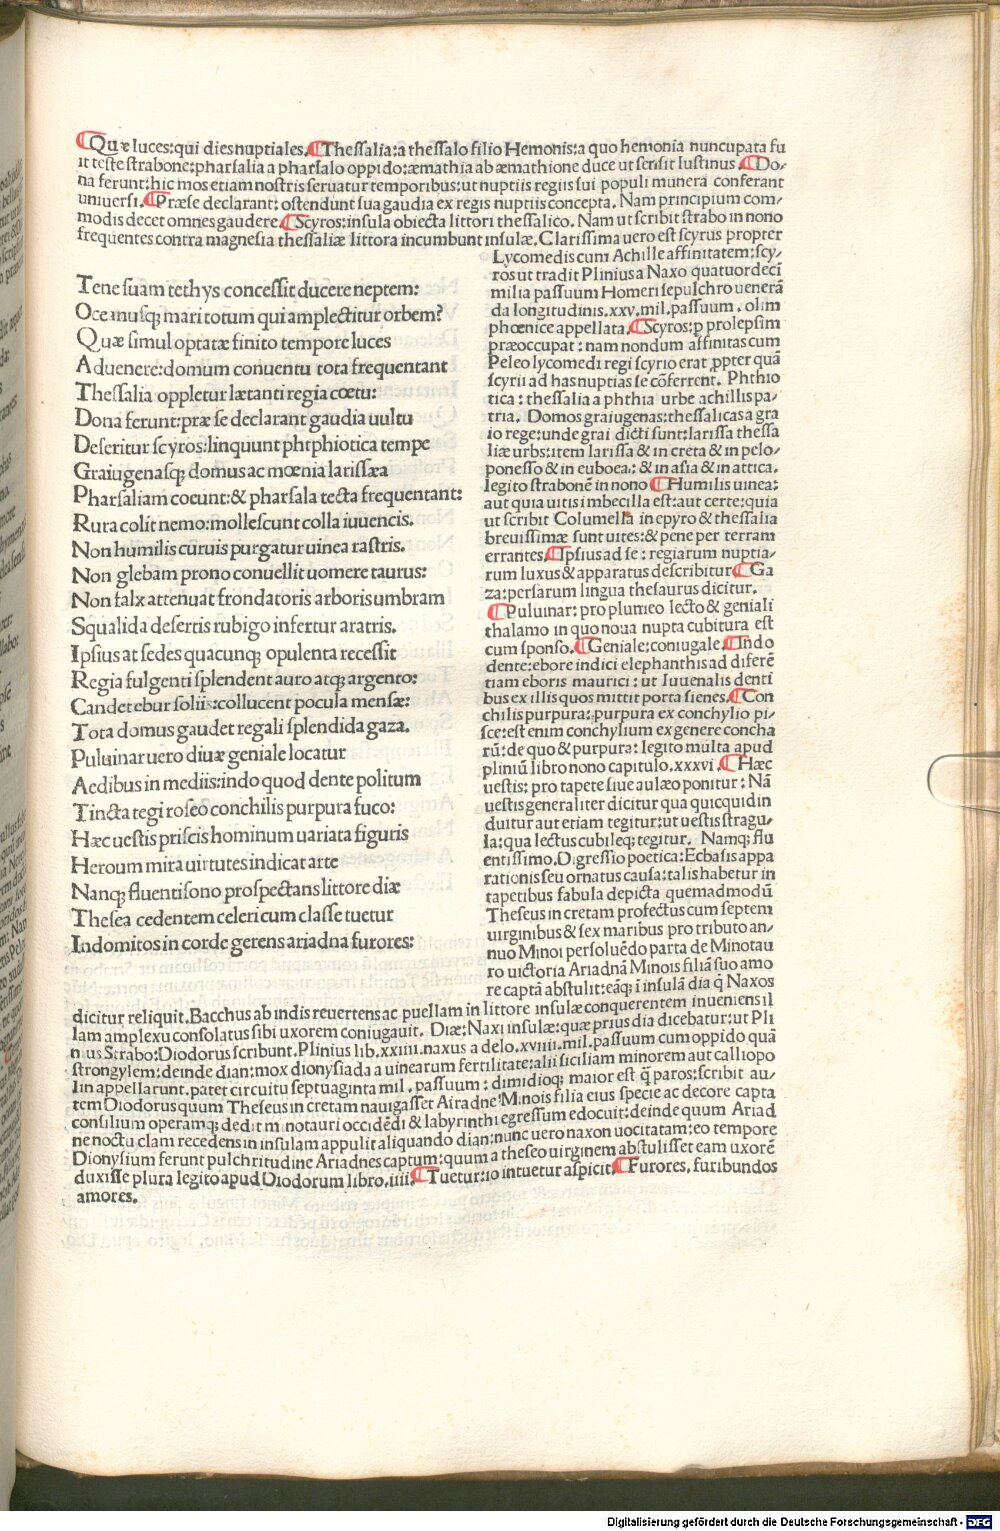 Quæ luces:qui dies nuptiales. Thessalia:a thessalo filio Hemonis:a quo hemonia nuncupata fu
it teste strabone:pharsalia a pharsalo oppido:æmathia ab æmathione duce ut scrisit Iustinus. Do-
na ferunt:hic mos etiam nostris seruatur temporibus:ut nuptiis regiis sui populi munera conferant
uniuersi. Præse declarant: ostendunt sua gaudia ex regis nuptiis concepta. Nam principium com-
modis decet omnes gaudere. Scyros:insula obiecta littori thessalico. Nam ut scribit strabo in nono
frequentes contra magnesia thessaliæ littora incumbunt insulæ. Clarissima uero est scyrus propter
Tene suam tethys concessit ducere neptem:
Oceanusq; mari totum qui amplectitur orbem?
Quæ simul optatæ finito tempore luces
Aduenere:domum conuentu tota frequentant
Thessalia oppletur lætanti regia cœtu:
Dona ferunt:præ se declarant gaudia uultu
Deseritur scyros:linquunt phtphiotica tempe
Graiugenasq; domus ac mœnia larissæa
Pharsaliam coeunt:& pharsala tecta frequentant:
Rura colit nemo:mollescunt colla iuuencis.
Non humilis curuis purgatur uinea rastris.
Non glebam prono conuellit uomere taurus:
Non falx attenuat frondatoris arboris umbram
Squalida desertis rubigo infertur aratris.
Ipsius at sedes quacunq; opulenta recessit
Regia fulgenti splendent auro atq; argento:
Candet ebur soliis:collucent pocula mensæ:
Tota domus gaudet regali splendida gaza.
Puluinar uero diuæ geniale locatur
Aedibus in mediis:indo quod dente politum
Tincta tegi roseo conchilis purpura fuco:
Hæc uestis priscis hominum uariata figuris
Heroum mira uirtutes indicat arte
Nanq; fluentisono prospectans littore diæ
Thesea cedentem celeri cum classe tuetur
Indomitos in corde gerens ariadna furores:
Lycomedis cum Achille affinitatem:scy-
ros ut tradit Plinius a Naxo quatuordecī
milia passuum Homeri sepulchro uenerā
da longitudinis.xxv.mil.passuum. olim
phœnice appellata. Scyros:p prolepsim
præoccupat: nam nondum affinitas cum
Peleo lycomedi regi scyrio erat ppter quā
scyrii ad has nuptias se cōferrent. Phthio
tica: thessalia a phthia urbe achillis pa-
tria. Domos graiugenas:thessalicas a gra
io rege:unde grai dicti sunt:larissa thessa
liæ urbs:item larissa & in creta & in pelo-
ponesso & in euboea: & in asia & in attica.
legito strabonē in nono Humilis uinea:
aut quia uitis imbecilla est:aut certe:quia
ut scribit Columella in epyro & thessalia
breuissimæ sunt uites:& pene per terram
errantes. Ipsius ad se: regiarum nuptia-
rum luxus & apparatus describitur Ga
za:persarum lingua thesaurus dicitur.
Puluinar: pro plumeo lecto & geniali
thalamo in quo noua nupta cubitura est
cum sponso. Geniale:coniugale. Indo
dente:ebore indici elephanthis ad diferē
tiam eboris maurici: ut Iuuenalis denti
bus ex illis quos mittit porta sienes. Con
chilis purpura:purpura ex conchylio pi-
sce:est enim conchylium ex genere concha
rū:de quo & purpura: legito multa apud
pliniū libro nono capitulo.xxxvi. Hæc
uestis: pro tapete siue aulæo ponitur: Nā
uestis generaliter dicitur qua quicquid in
duitur aut etiam tegitur:ut uestis stragu-
la:qua lectus cubileq; tegitur. Namq; flu
entissimo. Digressio poetica:Ecbasis appa
rationis seu ornatus causa:talis habetur in
tapetibus fabula depicta quemadmodū
Theseus in cretam profectus cum septem
uirginibus & sex maribus pro tributo an-
nuo Minoi persoluēdo parta de Minotau
ro uictoria Ariadnā Minois filiā suo amo
re captā abstulit:eāq; ī insulā dia q̄ Naxos
dicitur reliquit. Bacchus ab indis reuertens ac puellam in littore insulæ conquerentem inueniens il
lam amplexu consolatus sibi uxorem coniugauit. Diæ:Naxi insulæ:quæ prius dia dicebatur:ut Pli
nius Strabo:Diodorus scribunt. Plinius lib.xxiiii.naxus a delo.xviiii.mil.passuum cum oppido quā
strongylem:deinde dian:mox dionysiada a uinearum fertilitate:alii siciliam minorem aut calliopo
lin appellarunt.pater circuitu septuaginta mil.passuum: dimidioq; maior est q̄ paros:scribit au-
tem Diodorus quum Theseus in cretam nauigasset Airadne Minois filia eius specie ac decore capta
consilium operamq; dedit minotauri occidēdi & labyrinthi egressum edocuit:deinde quum Ariad
ne noctu clam recedens in insulam appulit aliquando dian:nunc uero naxon uocitatam:eo tempore
Dionysium ferunt pulchritudine Ariadnes captum:quum a theseo uirginem abstulisset eam uxorē
duxisse plura legito apud Diodorum libro.iiii. Tuetur:io intuetur aspicit. Furores, furibundos
amores.
Digitalisierung gefördert durch die Deutsche Forschungsgemeinschaft - DFG